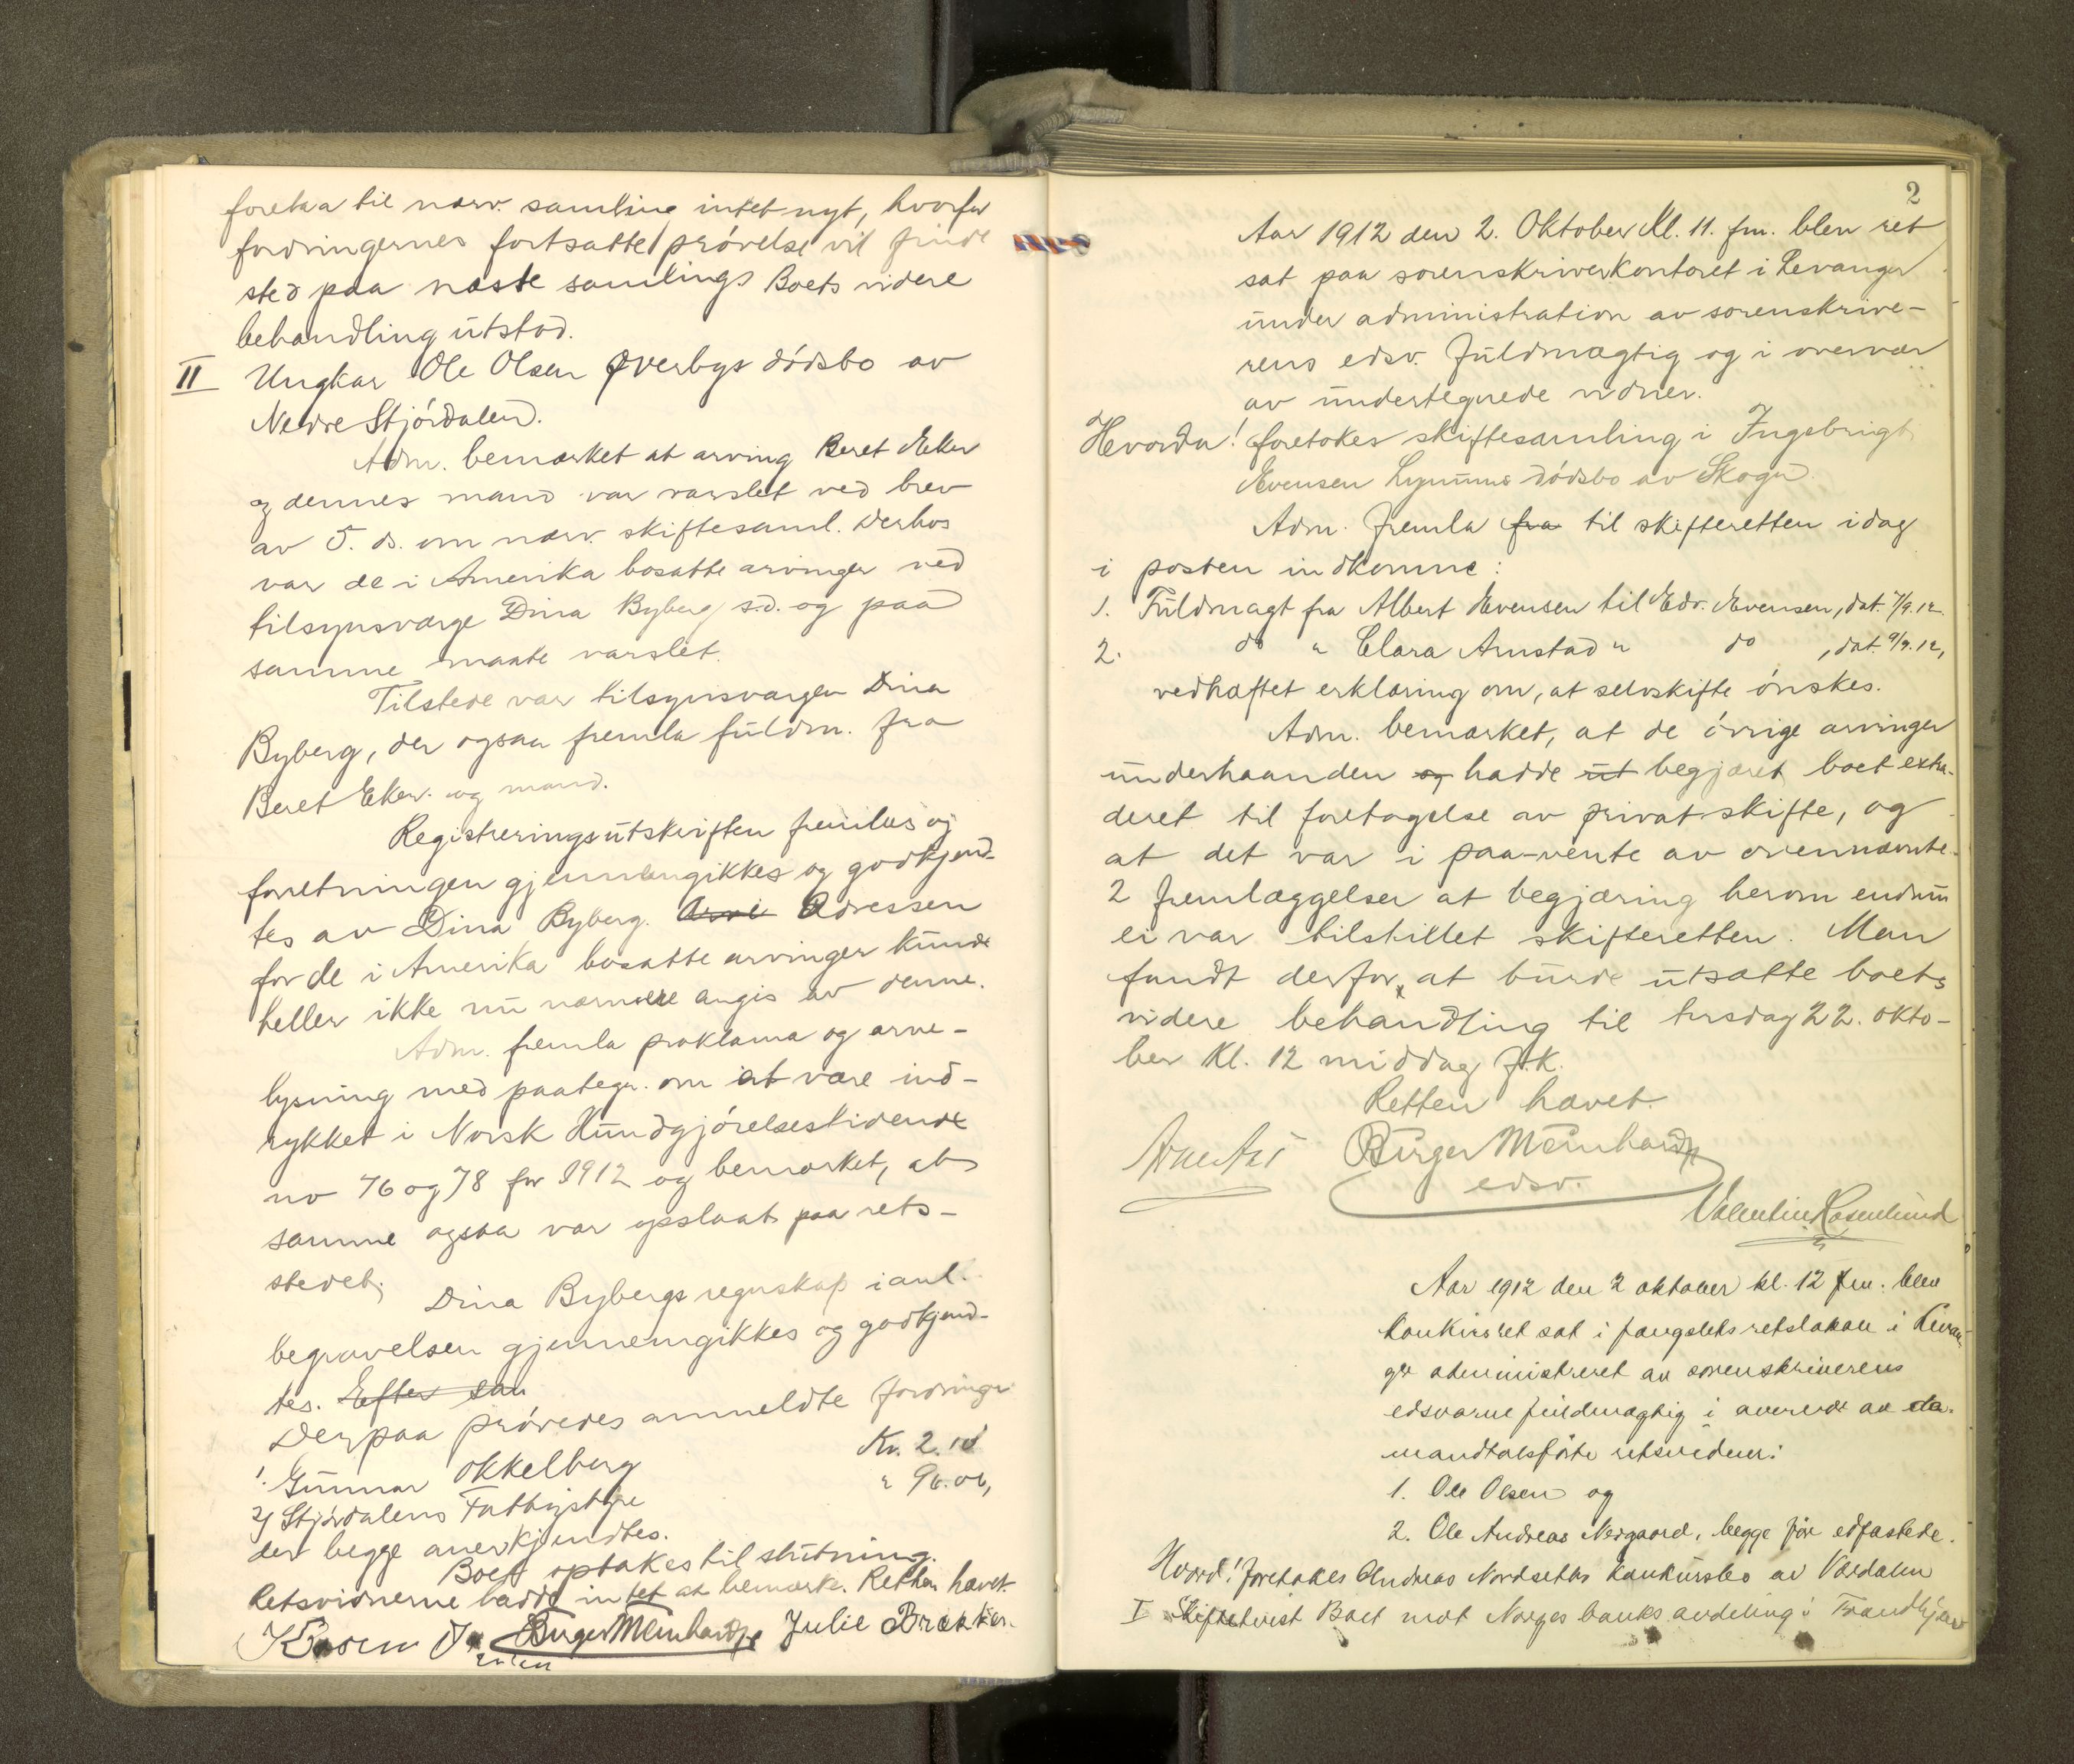 foretaa til nærv. samling intet nyt, hvorfor
fordringernes fortsatte prövelse vil finde
sted paa næste samling. Boets videre
behandling utstod.
II Ungkar Ole Olsen Øverbys dödsbo av
Nedre Stjördalen.
Adm. bemærket at arving Beret Eker
og dennes mand var varslet ved brev
av 5. ds. om nærv. skiftesaml. Derhos
var de i Amerika bosatte arvinger ved
tilsynsværge Dina Byberg s.d. og paa
samme maate varslet.
Tilstede var tilsynsværgen Dina
Byberg, der ogsaa fremla fuldm. fra
Beret Eker og mand.
Registreringsutskriften fremlaes og
forretningen gjennemgikkes og godkjend-
tes av Dina Byberg. Arvi Adressen
for de i Amerika bosatte arvinger kunde
heller ikke nu nærmere angis av denne.
Adm. fremla proklama og arve-
lysning med paategn. om at være ind-
rykket i Norsk Kundgjörelsestidende
no 76 og 78 for 1912 og bemærket, at
samme ogsaa var opslaat paa rets-
stedet.
Dina Bybergs regnskap i anl.
begravelsen gjennemgikkes og godkjend-
tes. Efter san
Derpaa prövedes anmeldte fordringer
1. Gunnar Okkelberg Kr. 2.10
2) Stjördalens Fattigstyre " 96.06,
der begge anerkjendtes.
Boet optakes til slutning.
Retsvidnerne hadde intet at bemærke. Retten hævet
Birger Meinhardt Julie Brækken
2
Aar 1912 den 2. Oktober kl. 11. fm. blev ret
sat paa sorenskriverkontoret i Levanger
under administration av sorenskrive-
rens edsv. fuldmægtig og i overvær
av undertegnede vidner.
Hvorda! foretokes skiftesamling i Ingebrigt
Evensen Lynums dödsbo av Skogn.
Adm. fremla fra til skifteretten idag
i posten indkomne:
1. Fuldmagt fra Albert Evensen til Edv. Evensen, dat. 7/9.12
2. do " Clara Arnstad " do , dat. 9/9.12,
vedhæftet erklæring om, at selvskifte önskes.
Adm. bemærket, at de övrige arvinger
underhaanden og hadde ut begjæret boet extra-
deret til foretagelse av privat skifte, og
at det var i paa-vente av ovennævnte
2 fremlæggelser at begjæring herom endnu
ei var tilstillet skifteretten. Man
fandt derfor at burde utsætte boets
videre behandling til tirsdag 22. okto-
ber kl. 12 middag f.k.
Retten hævet.
Birger Meinhardt
edsv.
Valentin Rosenlund
Aar 1912 den 2 oktober kl. 12 fm. blev
konkursret sat i fængslets retslokale i Levan-
ger administreret av sorenskriverens
edsvorne fuldmægtig i overvær av da-
mandtalsförte retsvidner:
1. Ole Olsen og
2. Ole Andreas Nesgaard, begge för edfæstede.
Hvord! foretokes Andreas Nordseths konkursbo av Værdalen
I Skiftetvist Boet mot Norges banks avdeling i Trondhjem